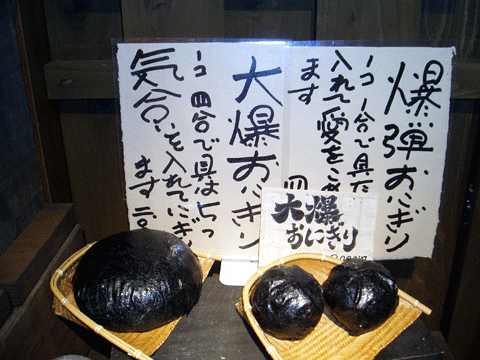 爆弾おにぎり
一コ 一合で具た
入れて愛をこめ
ます
大爆おにぎり
一コ 四合で具は七つ
気合いを入れてにぎり
ます
大爆
おにぎり